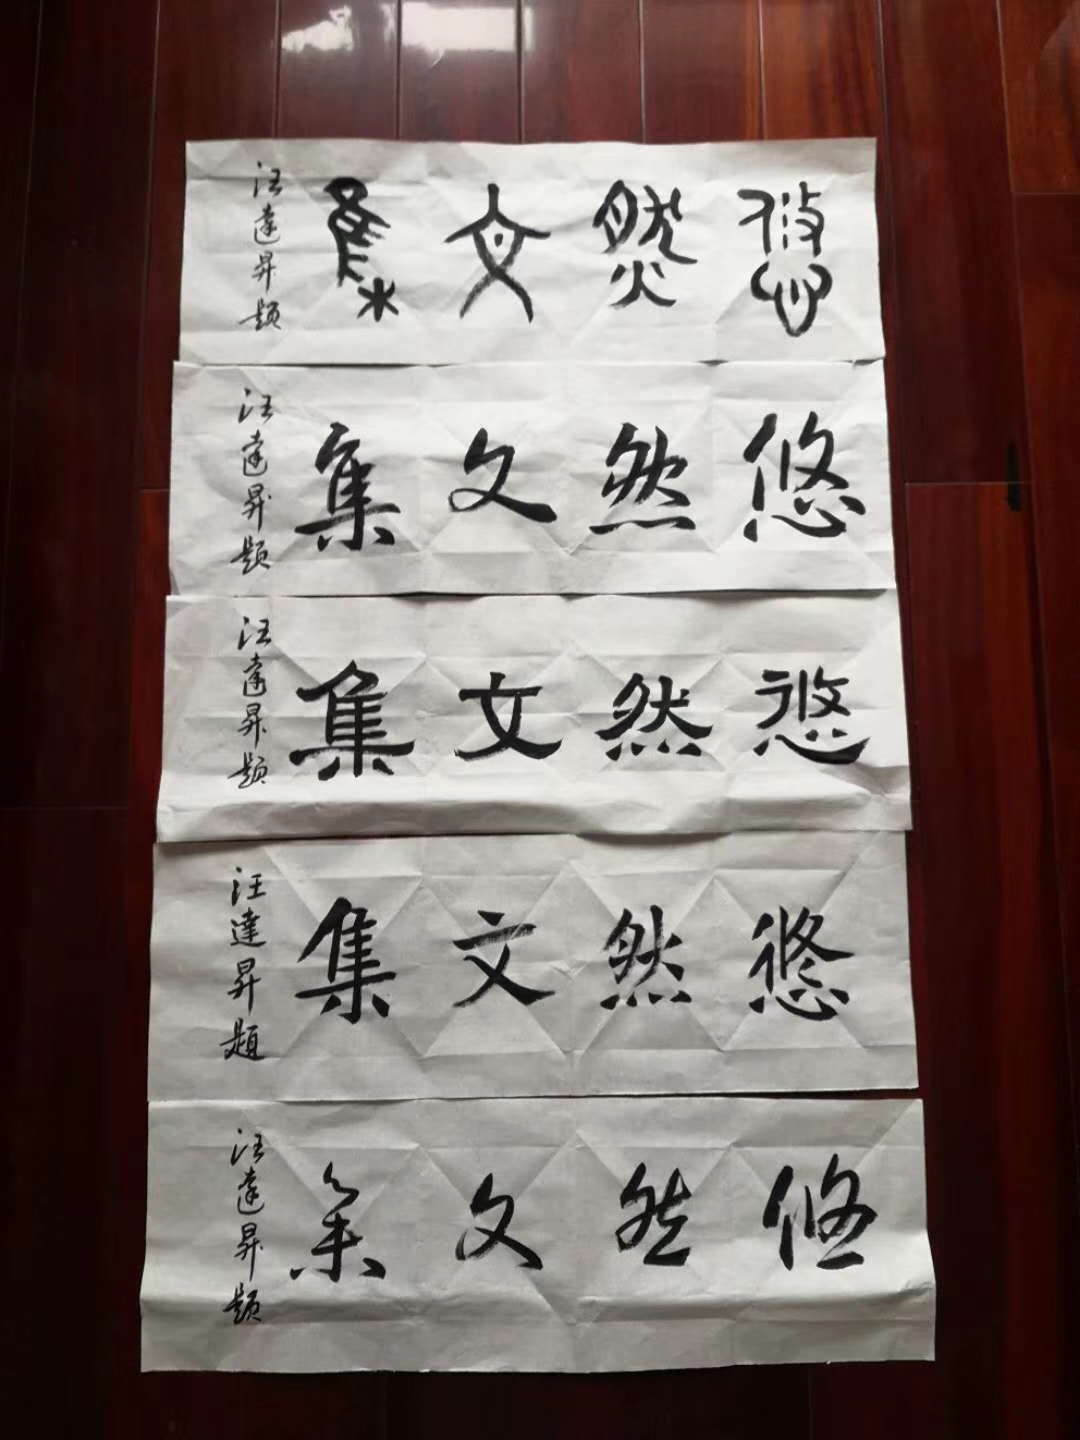 悠然文集
汪達昇题
悠然文集
汪達昇题
悠然文集
汪達昇题
悠然文集
汪達昇題
悠然文集
汪達昇题